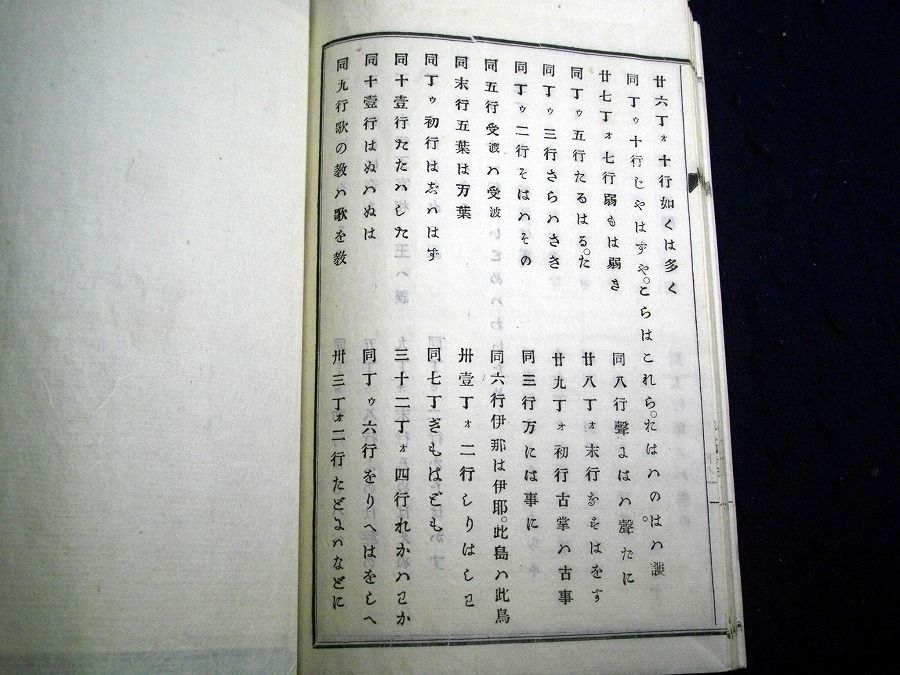 廿六丁ォ十行如くは多く
同丁ゥ十行じやはずや。こらはこれら。たはハのはハ誤。
廿七丁ォ七行弱もは弱き
同丁ゥ五行たるはる。た
同丁ゥ三行さらハさき
同丁ゥ二行そはハその
同五行受渡ハ受波
同末行五葉は万葉
同丁ゥ初行はゑハはず
同十壹行たたハした
同十壹行はぬハぬは
同九行歌の教ハ歌を教
同八行聲よはハ聲たに
廿八丁ォ末行なをはをす
廿九丁ォ初行古掌ハ古事
同三行万には事に
同六行伊那は伊耶。此島ハ此鳥
卅壹丁ォ二行しりはしヒ
同七丁ぎもはども
三十二丁ォ四行れかハヒか
同丁ゥ六行をりへはをしへ
卅三丁ォ二行たどよハなどに